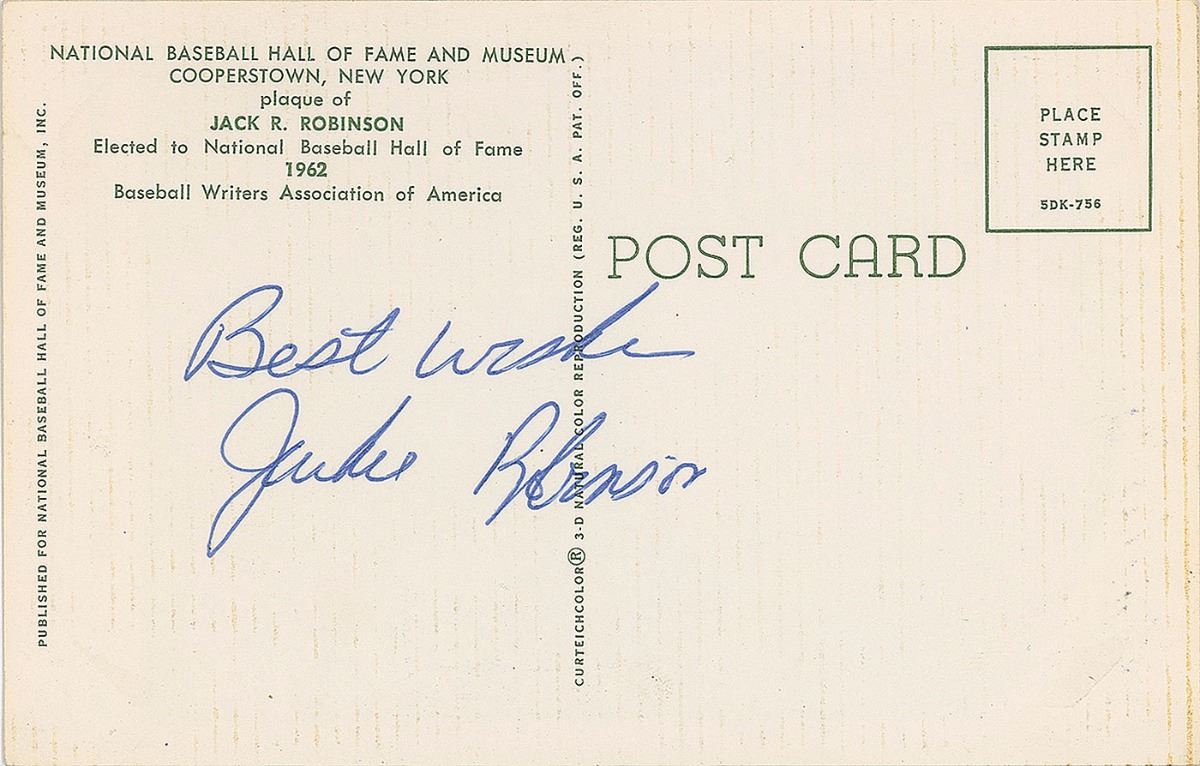 NATIONAL BASEBALL HALL OF FAME AND MUSEUM
COOPERSTOWN, NEW YORK
plaque of
JACK R. ROBINSON
Elected to National Baseball Hall of Fame
1962
Baseball Writers Association of America
PUBLISHED FOR NATIONAL BASEBALL HALL OF FAME AND MUSEUM, INC.
CURTEICHCOLOR® 3-D NATURAL COLOR REPRODUCTION (REG. U. S. A. PAT. OFF.)
PLACE
STAMP
HERE
5DK-756
POST CARD
Best wishes
Jackie Robinson